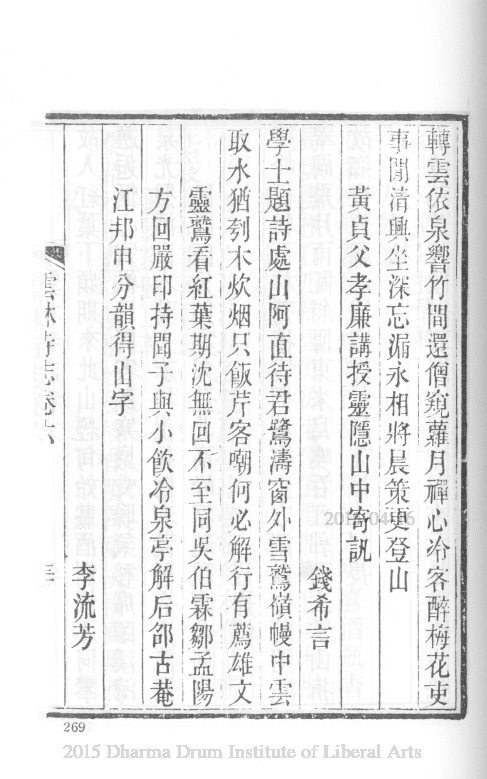 轉雲依泉響竹間還僧窺蘿月禪心冷客醉梅花吏
事閒清興坐深忘漏永相將晨策更登山
黃貞父孝廉講授靈隱山中寄訊
錢希言
學士題詩處山阿直待君鷺濤窗外雪鷲嶺幔中雲
取水猶刳木炊烟只飯芹客嘲何必解行有薦雄文
靈鷲看紅葉期沈無回不至同吳伯霖鄒孟陽
方回嚴印持聞子與小飲冷泉亭解后邵古菴
江邦申分韻得山字
李流芳
雲林寺志卷六
269
2015 Dharma Drum Institute of Liberal Arts